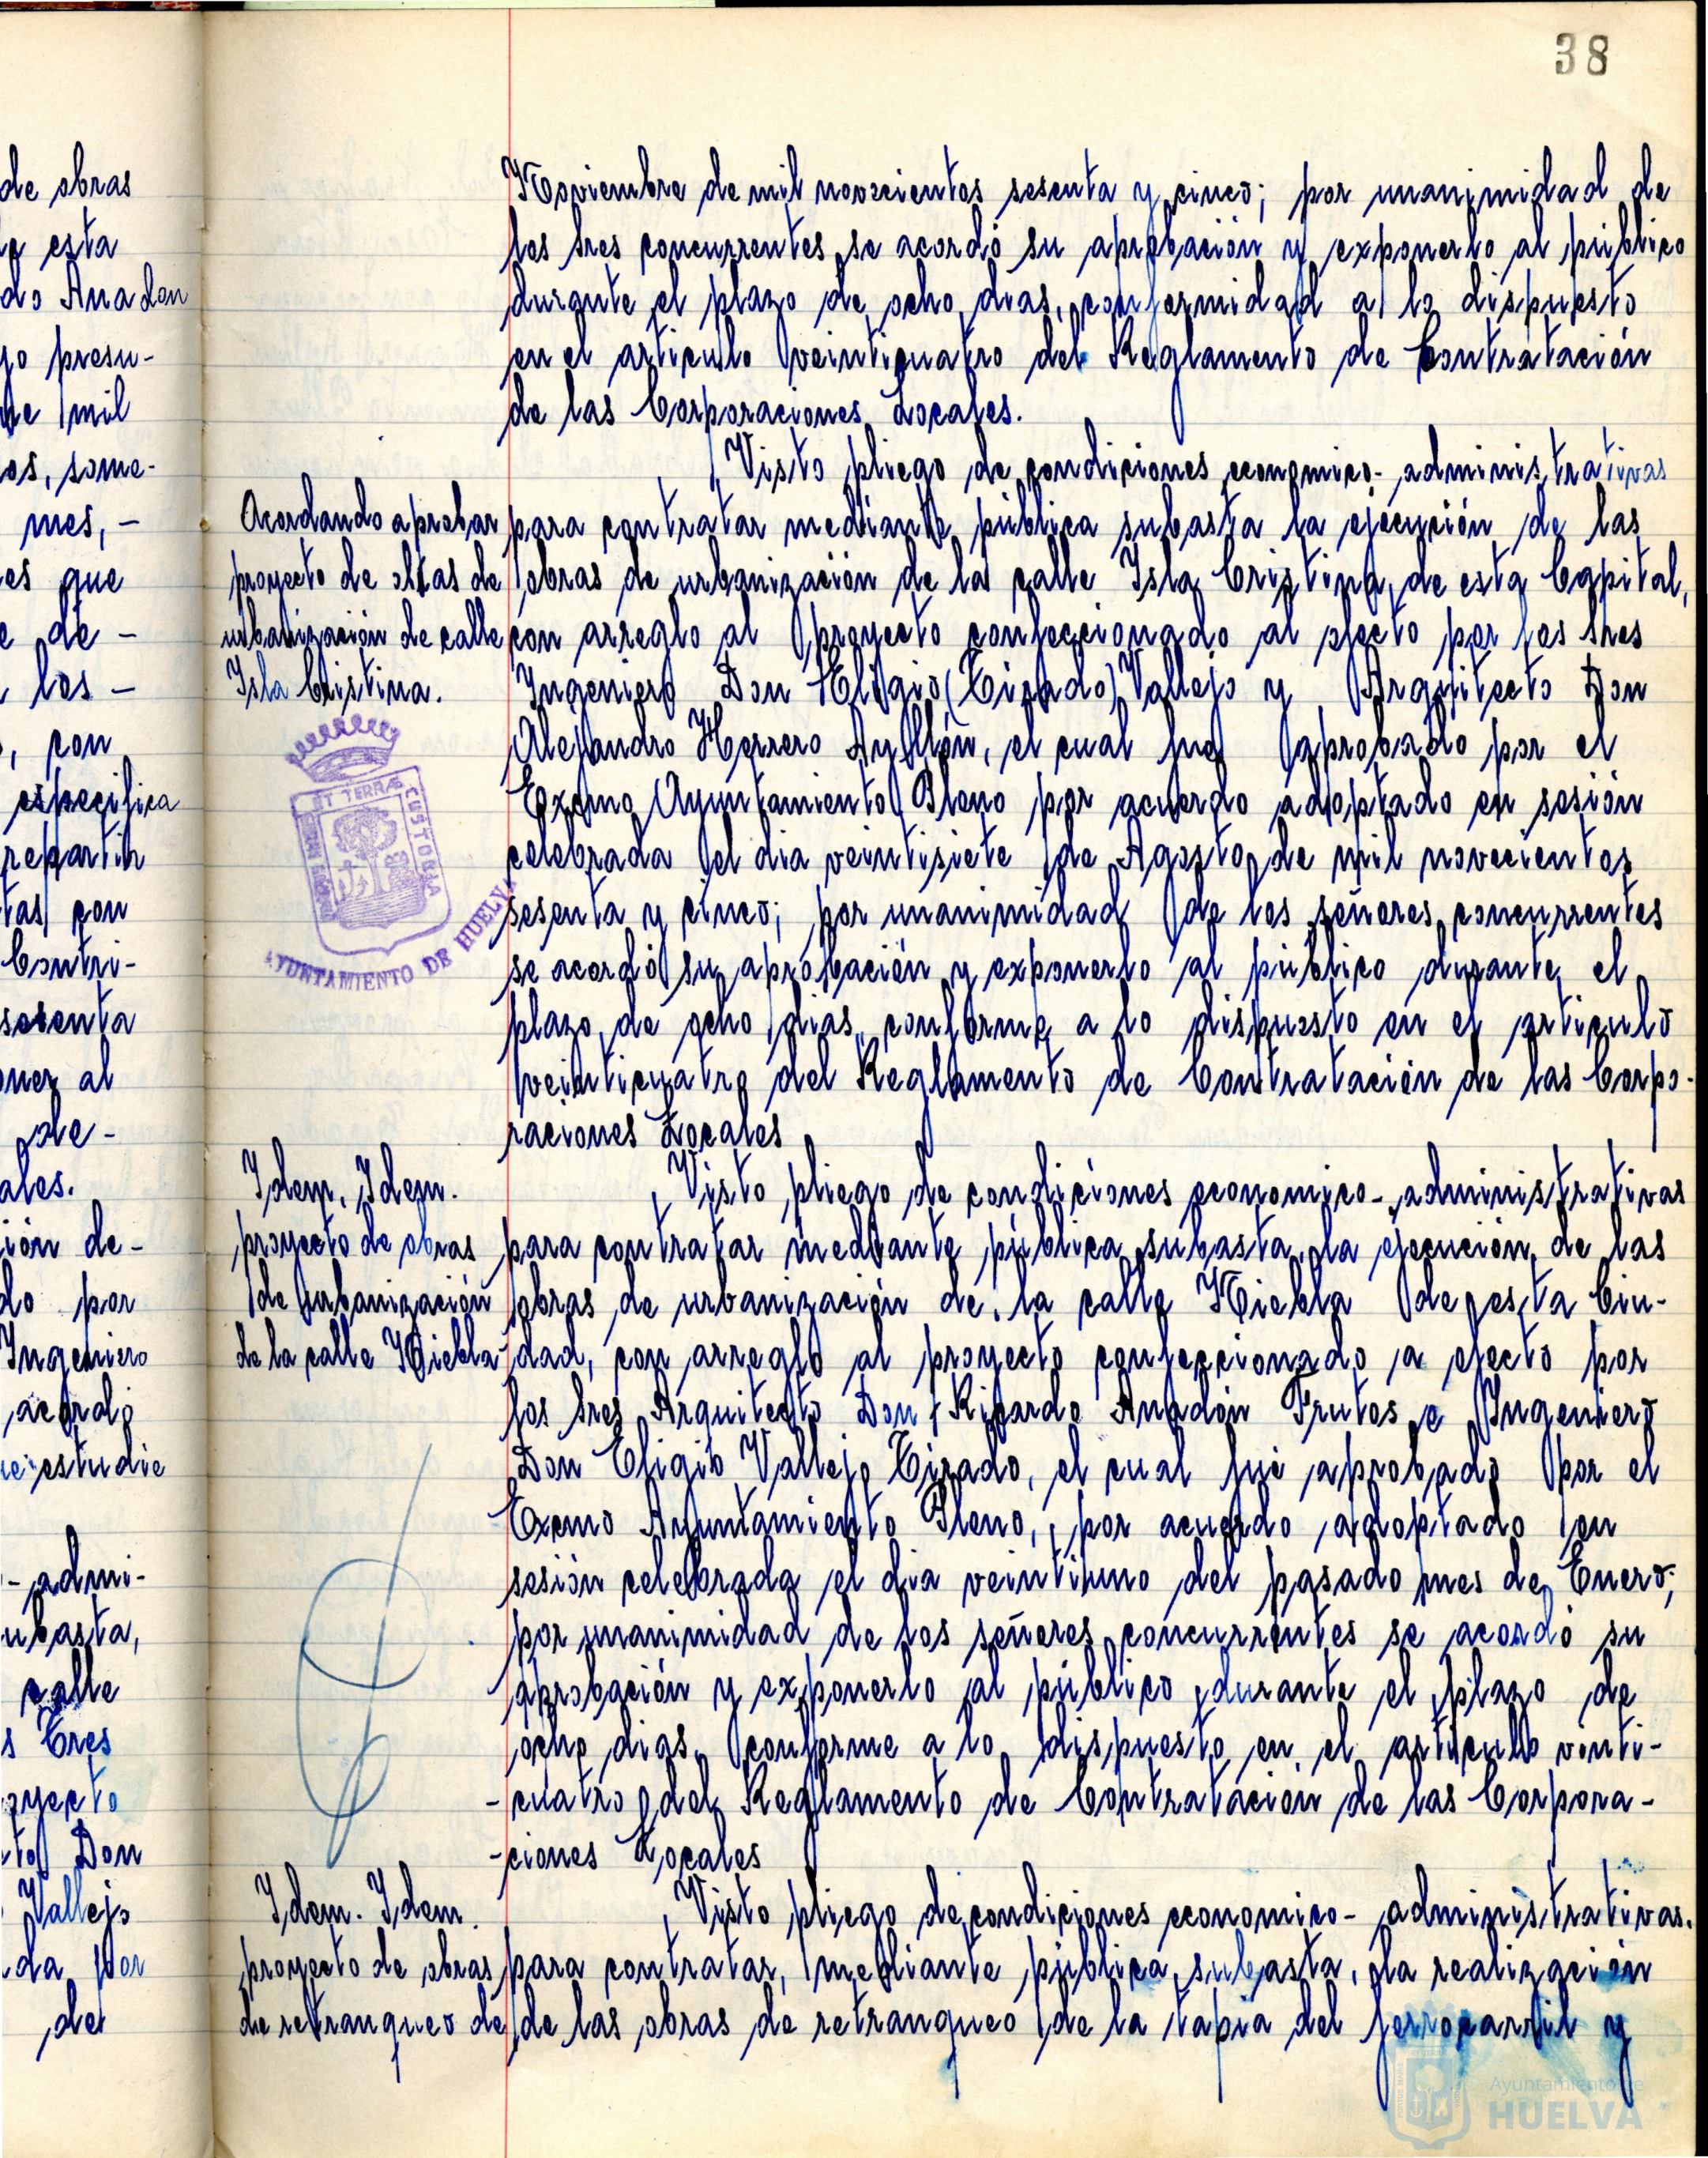 38
de obras
esta
do Anadon
presu-
mil
os, some-
mes, -
es que
e de -
los -
, con
especifica
repartir
tas con
Contri-
sesenta
oner al
de -
ales.
ión de -
do por
Ingeniero
acordó
estudie
- admi-
ubasta,
calle
s Tres
oyecto
to Don
Vallejo
da por
de
Noviembre de mil novecientos sesenta y cinco; por unanimidad de
los sres concurrentes se acordó su aprobación y exponerlo al público
durante el plazo de ocho dias, conformidad a lo dispuesto
en el articulo veinticuatro del Reglamento de Contratación
de las Corporaciones Locales.
Visto pliego de condiciones economico-administrativas
Acordando aprobar
proyecto de obras de
urbanización de calle
Isla Cristina.
para contratar mediante pública subasta la ejecución de las
obras de urbanización de la calle Isla Cristina, de esta Capital,
con arreglo al proyecto confeccionado al efecto por los sres
Ingeniero Don Eligio (Tirado) Vallejo y Arquitecto Don
Alejandro Herrero Ayllón, el cual fue aprobado por el
Excmo Ayuntamiento Pleno por acuerdo adoptado en sesión
celebrada el dia veintisiete de Agosto de mil novecientos
sesenta y cinco; por unanimidad de los señores concurrentes
se acordó su aprobación y exponerlo al público durante el
plazo de ocho dias conforme a lo dispuesto en el articulo
veinticuatro del Reglamento de Contratación de las Corpo-
raciones Locales
ET TERRÆ CUSTODIA
AYUNTAMIENTO DE HUELVA
Idem. Idem.
proyecto de obras
de urbanización
de la calle Niebla
Visto pliego de condiciones economico-administrativas
para contratar mediante pública subasta la ejecución de las
obras de urbanización de la calle Niebla de esta Ciu-
dad, con arreglo al proyecto confeccionado a efecto por
los sres Arquitecto Don Ricardo Anadón Frutos e Ingeniero
Don Eligio Vallejo Tirado, el cual fué aprobado por el
Excmo Ayuntamiento Pleno, por acuerdo adoptado en
sesión celebrada el dia veintiuno del pasado mes de Enero;
por unanimidad de los señores concurrentes se acordó su
aprobación y exponerlo al público durante el plazo de
ocho dias conforme a lo dispuesto en el articulo vinti-
-cuatro del Reglamento de Contratación de las Corpora-
-ciones Locales
Idem. Idem.
proyecto de obras
de retranqueo de
Visto pliego de condiciones economico-administrativas.
para contratar, mediante pública subasta, la realización
de las obras de retranqueo de la tapia del ferrocarril y
Ayuntamiento de
HUELVA